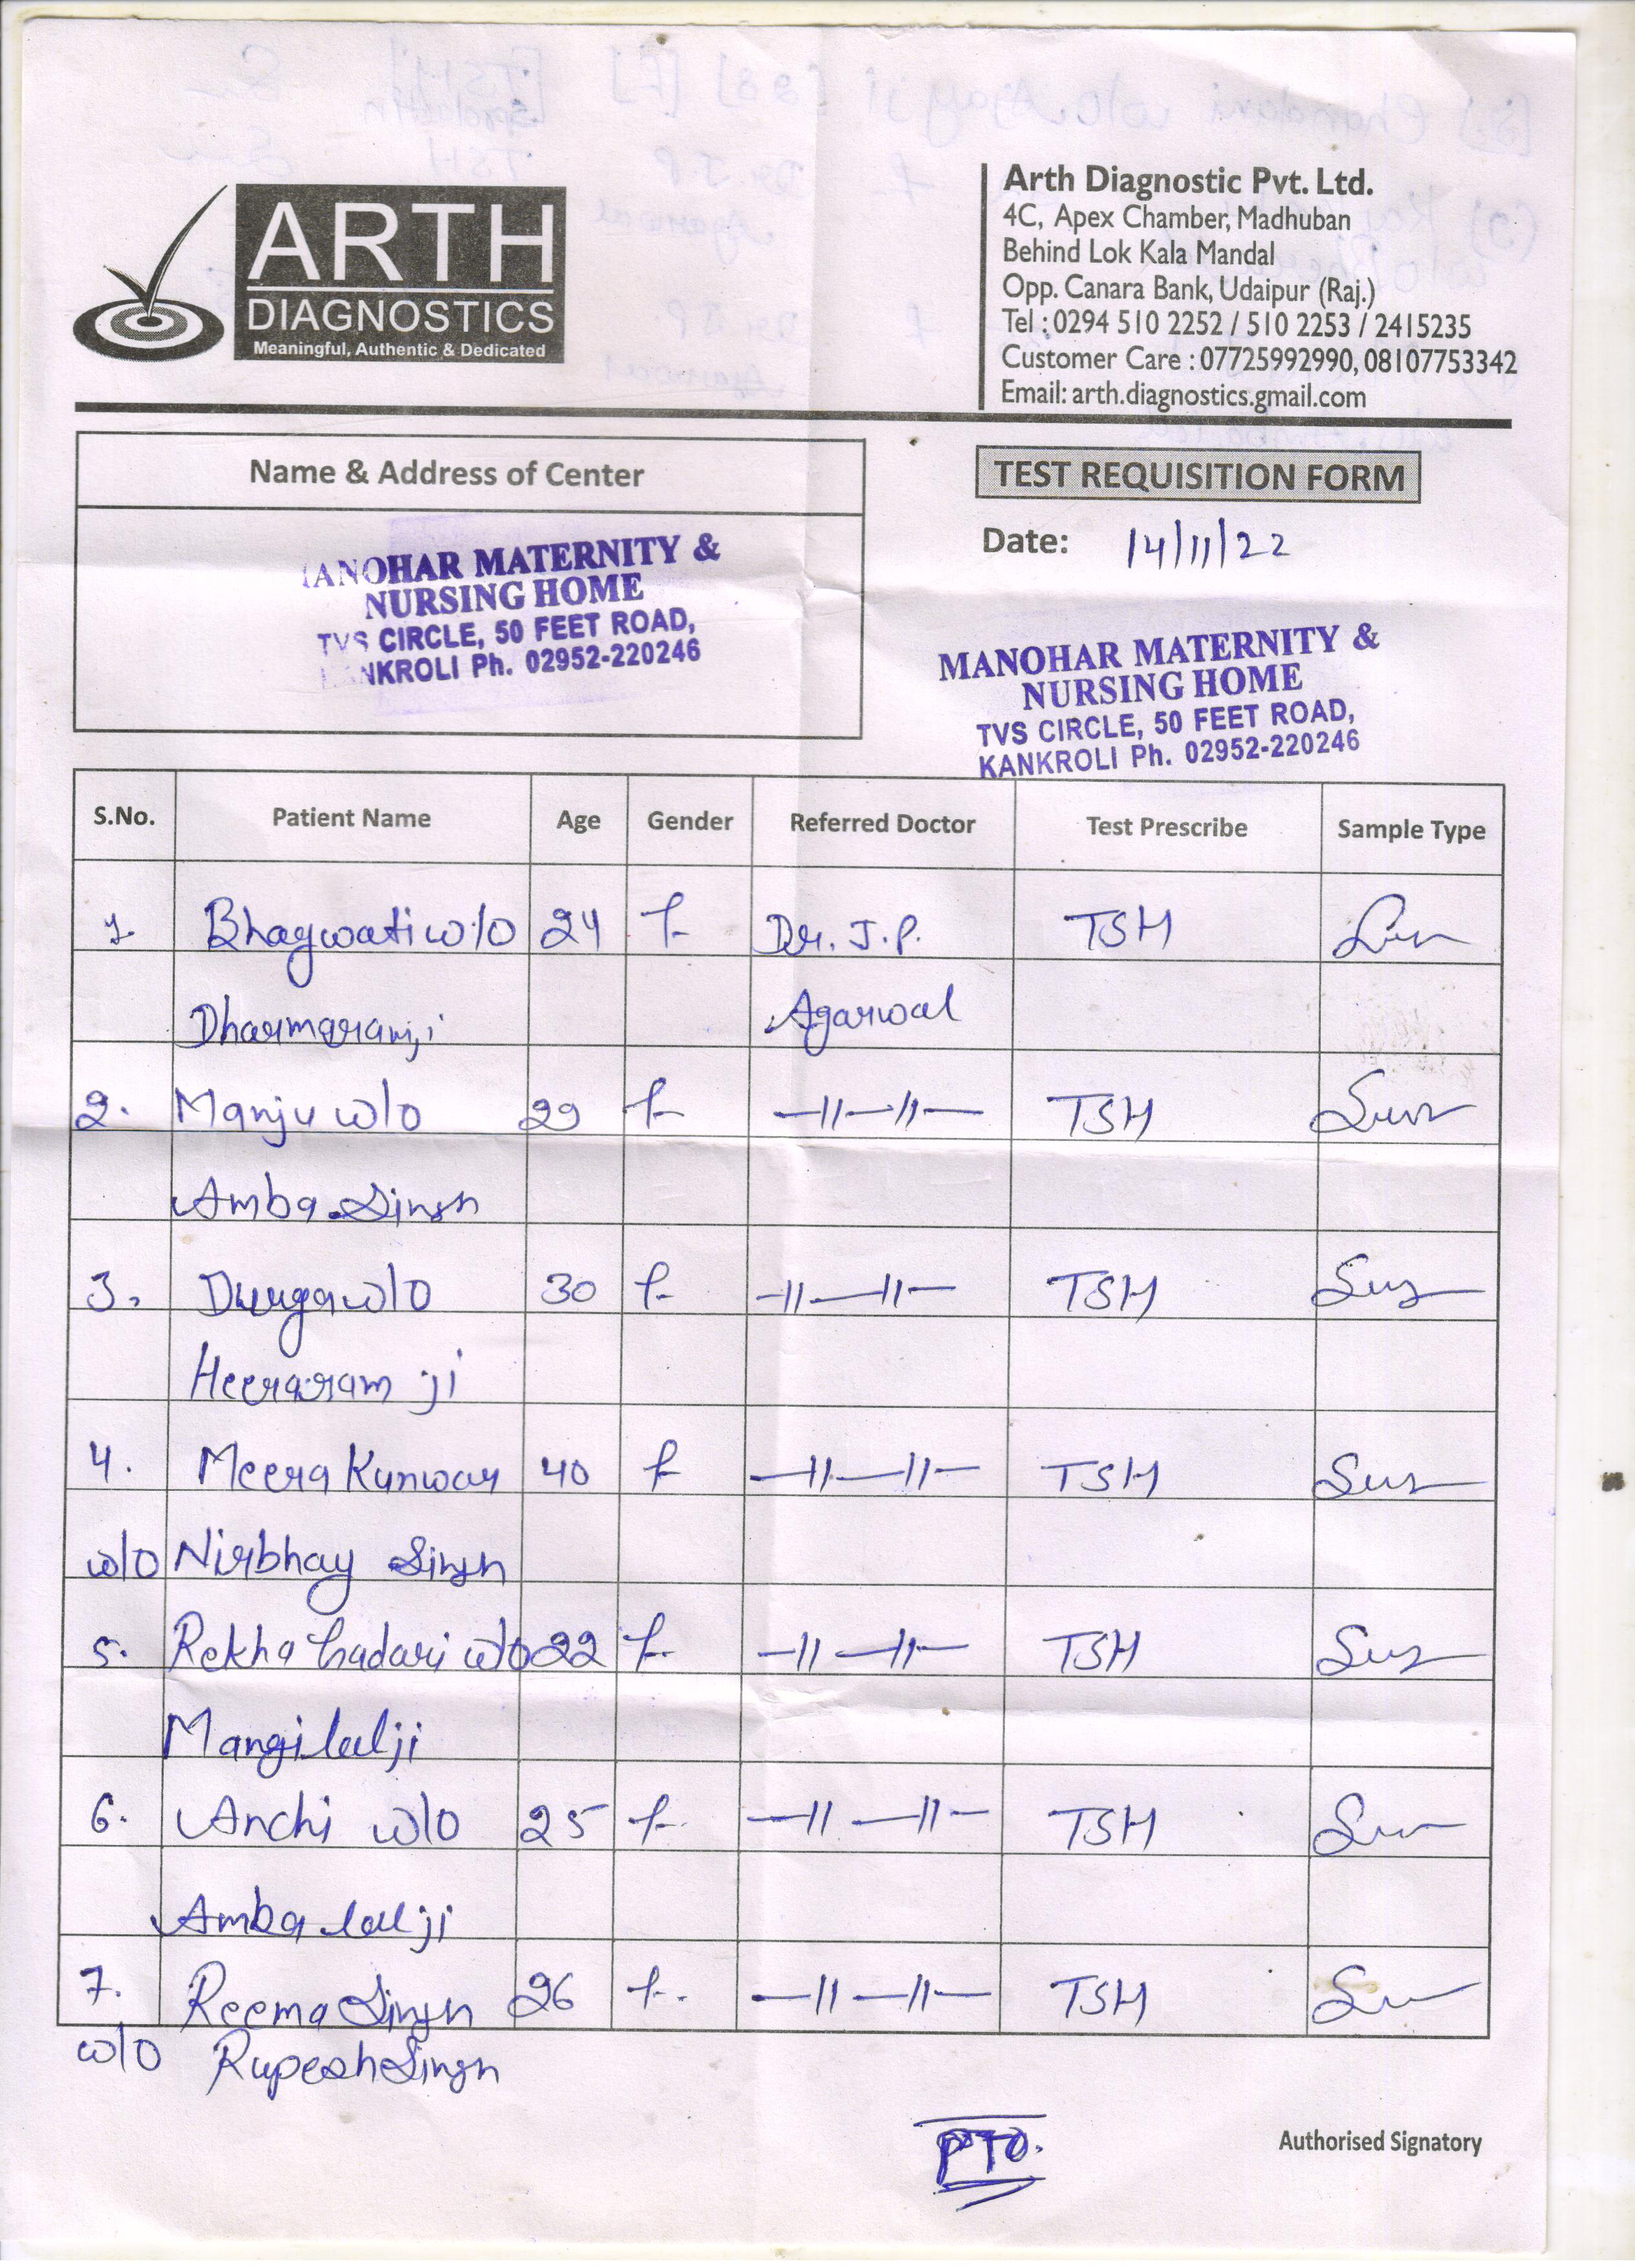 ARTH
DIAGNOSTICS
Meaningful, Authentic & Dedicated
Arth Diagnostic Pvt. Ltd.
4C, Apex Chamber, Madhuban
Behind Lok Kala Mandal
Opp. Canara Bank, Udaipur (Raj.)
Tel : 0294 510 2252 / 510 2253 / 2415235
Customer Care : 07725992990, 08107753342
Email: arth.diagnostics.gmail.com
Name & Address of Center
TEST REQUISITION FORM
Date: 14/11/22
ANOHAR MATERNITY &
NURSING HOME
TVS CIRCLE, 50 FEET ROAD,
ANKROLI Ph. 02952-220246
MANOHAR MATERNITY &
NURSING HOME
TVS CIRCLE, 50 FEET ROAD,
KANKROLI Ph. 02952-220246
S.No. Patient Name Age Gender Referred Doctor Test Prescribe Sample Type
1. Bhagwati w/o 24 f Dr. J.P. TSH
Dharmaramji Agarwal
2. Manju w/o 29 f —11—11— TSH
Amba Singh
3. Durga w/o 30 f —11—11— TSH
Heeraram ji
4. Meera Kunwar 40 f —11—11— TSH
w/o Nirbhay Singh
5. Rekha w/o 22 f —11—11— TSH
Mangilalji
6. Anchi w/o 25 f —11—11— TSH
Amba lal ji
7. Reema Singh 26 f —11—11— TSH
w/o Rupesh Singh
PTO.
Authorised Signatory